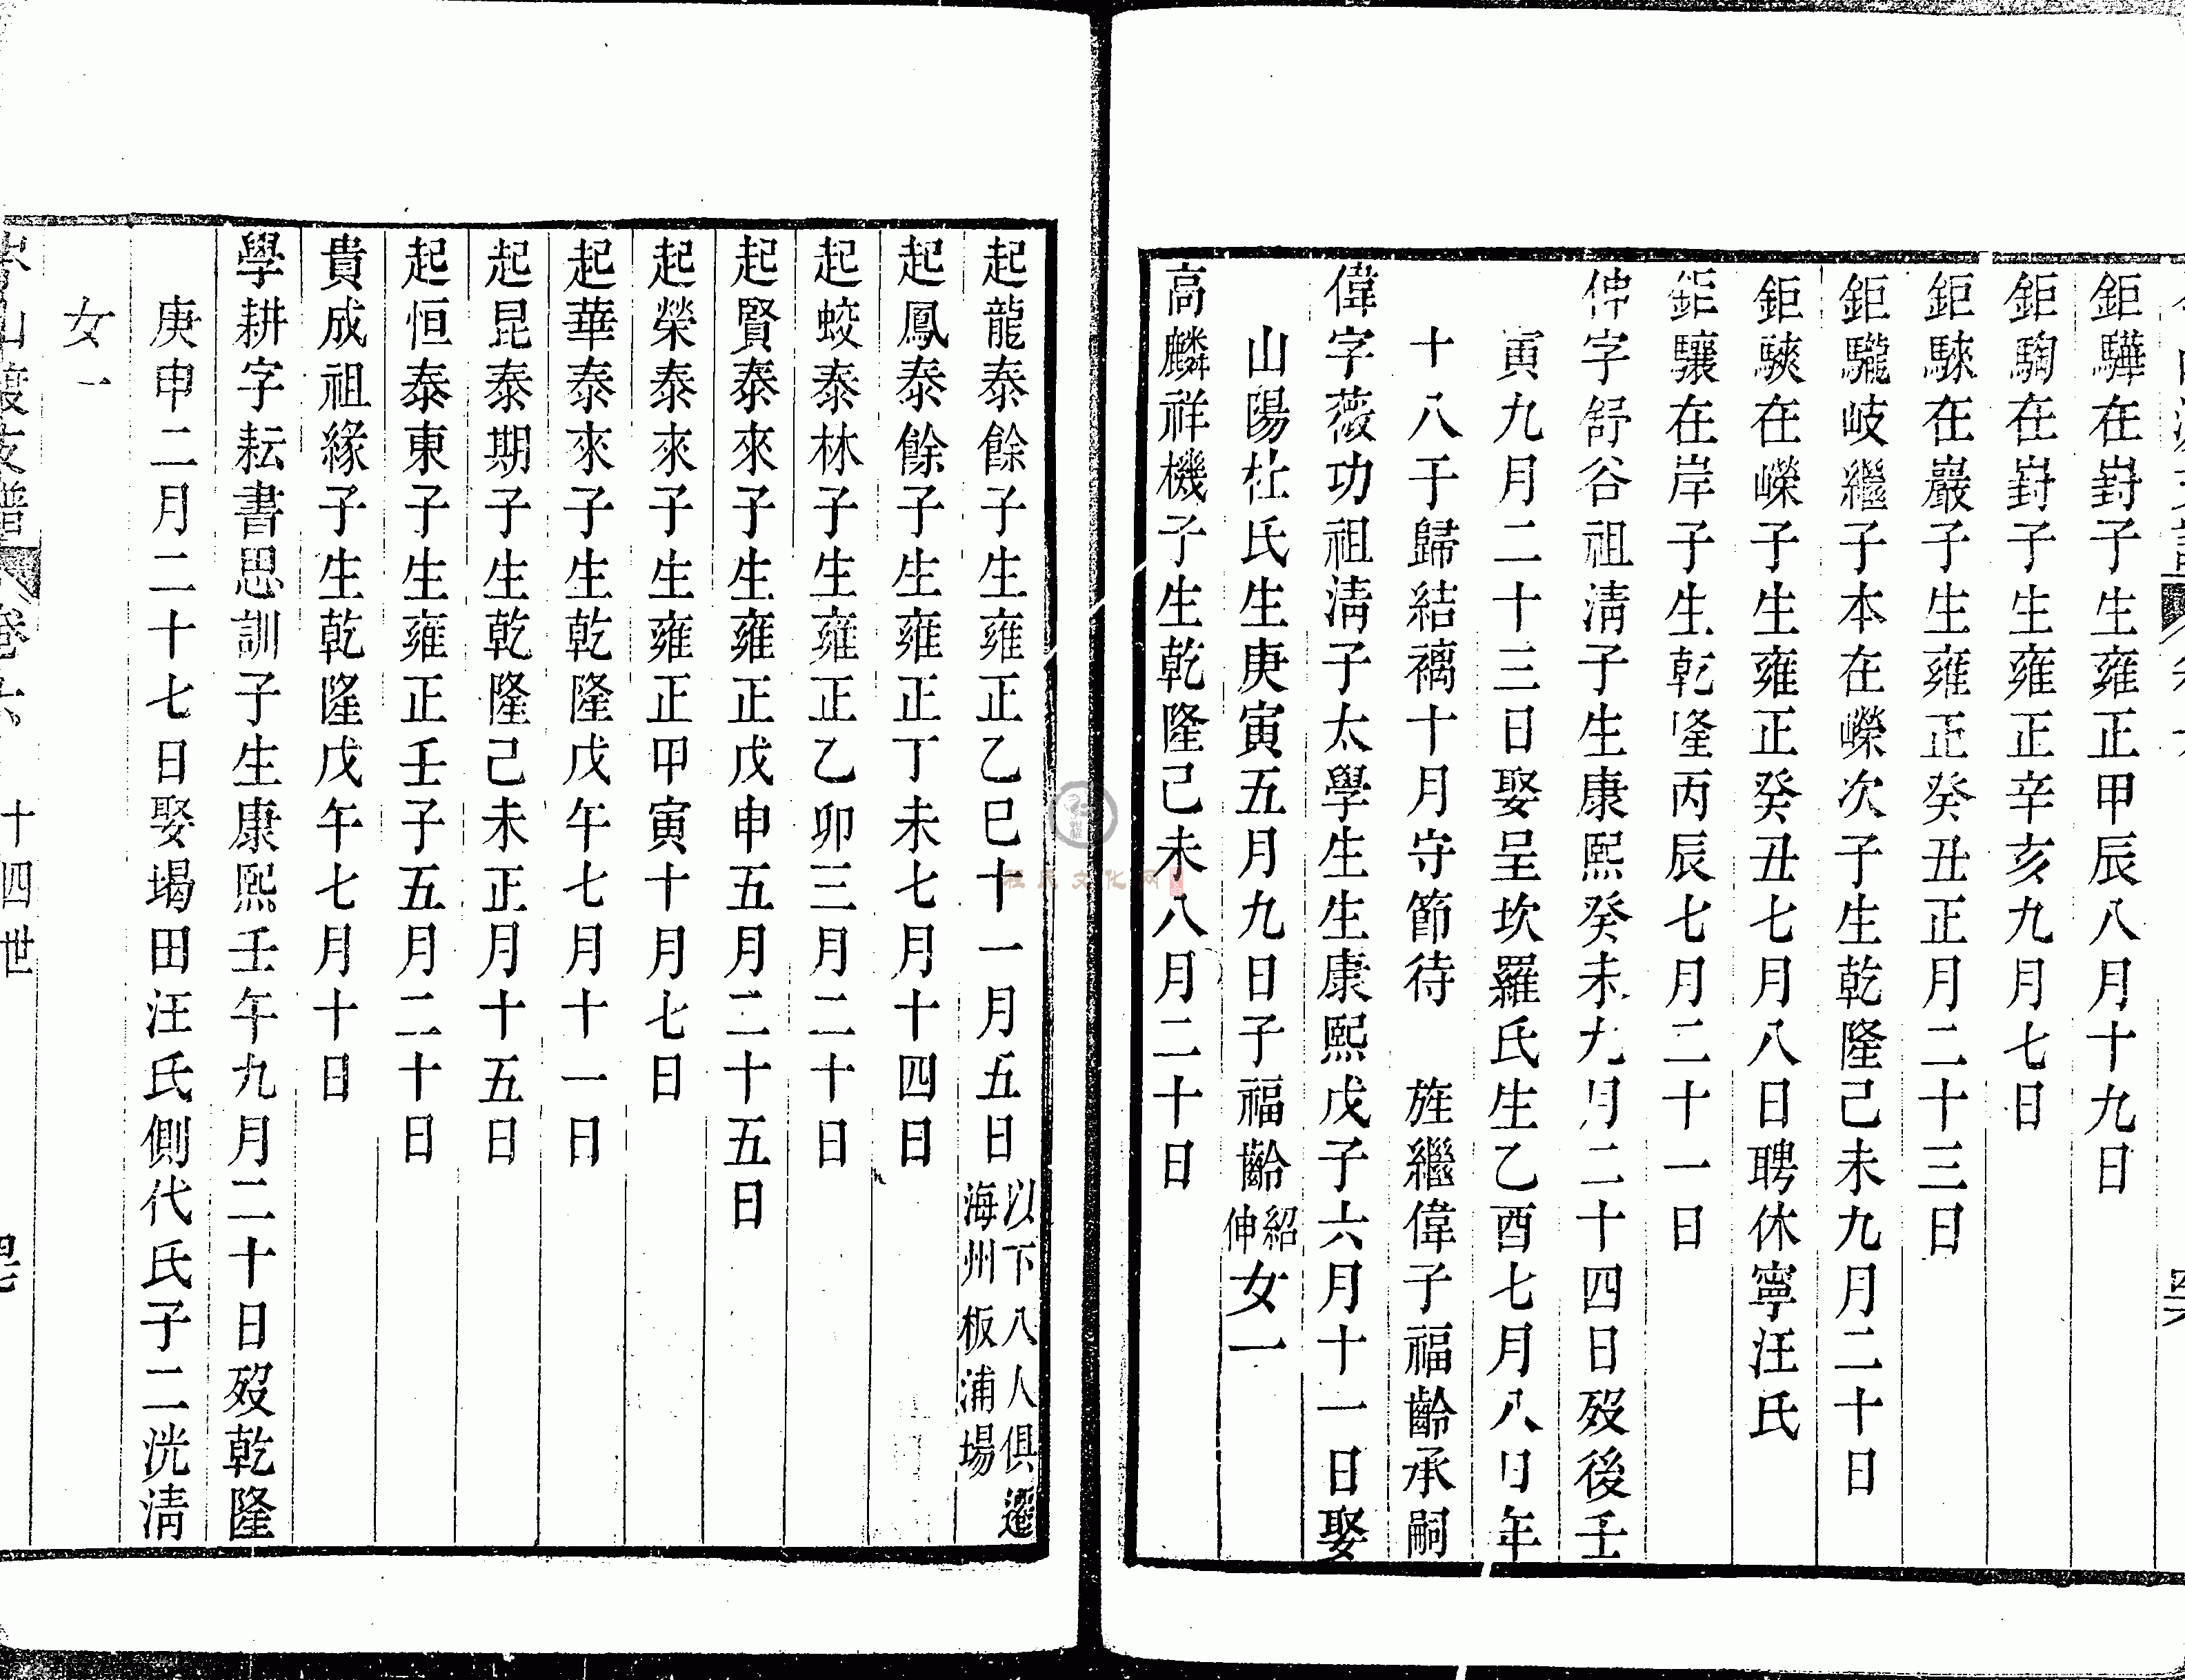 鉅驊在崶子生雍正甲辰八月十九日
鉅騊在崶子生雍正辛亥九月七日
鉅騋在巖子生雍正癸丑正月二十三日
鉅驪岐繼子本在嶸次子生乾隆己未九月二十日
鉅騻在嶸子生雍正癸丑七月八日聘休寧汪氏
鉅驤在岸子生乾隆丙辰七月二十一日
伸字舒谷祖淸子生康熙癸未九月二十四日歿後壬
寅九月二十三日娶呈坎羅氏生乙酉七月八日年
十八于歸結褵十月守節待 旌繼偉子福齡承嗣
偉字薇功祖淸子太學生生康熙戊子六月十一日娶
山陽杜氏生庚寅五月九日子福齡紹伸女一
高麟祥機子生乾隆己未八月二十日
起龍泰餘子生雍正乙巳十一月五日以下八人俱遷海州板浦場
起鳳泰餘子生雍正丁未七月十四日
起蛟泰林子生雍正乙卯三月二十日
起賢泰來子生雍正戊申五月二十五日
起榮泰來子生雍正甲寅十月七日
起華泰來子生乾隆戊午七月十一日
起昆泰期子生乾隆己未正月十五日
起恒泰東子生雍正壬子五月二十日
貴成祖緣子生乾隆戊午七月十日
學耕字耘書思訓子生康熙壬午九月二十日歿乾隆
庚申二月二十七日娶堨田汪氏側代氏子二洸淸
女一
十四世